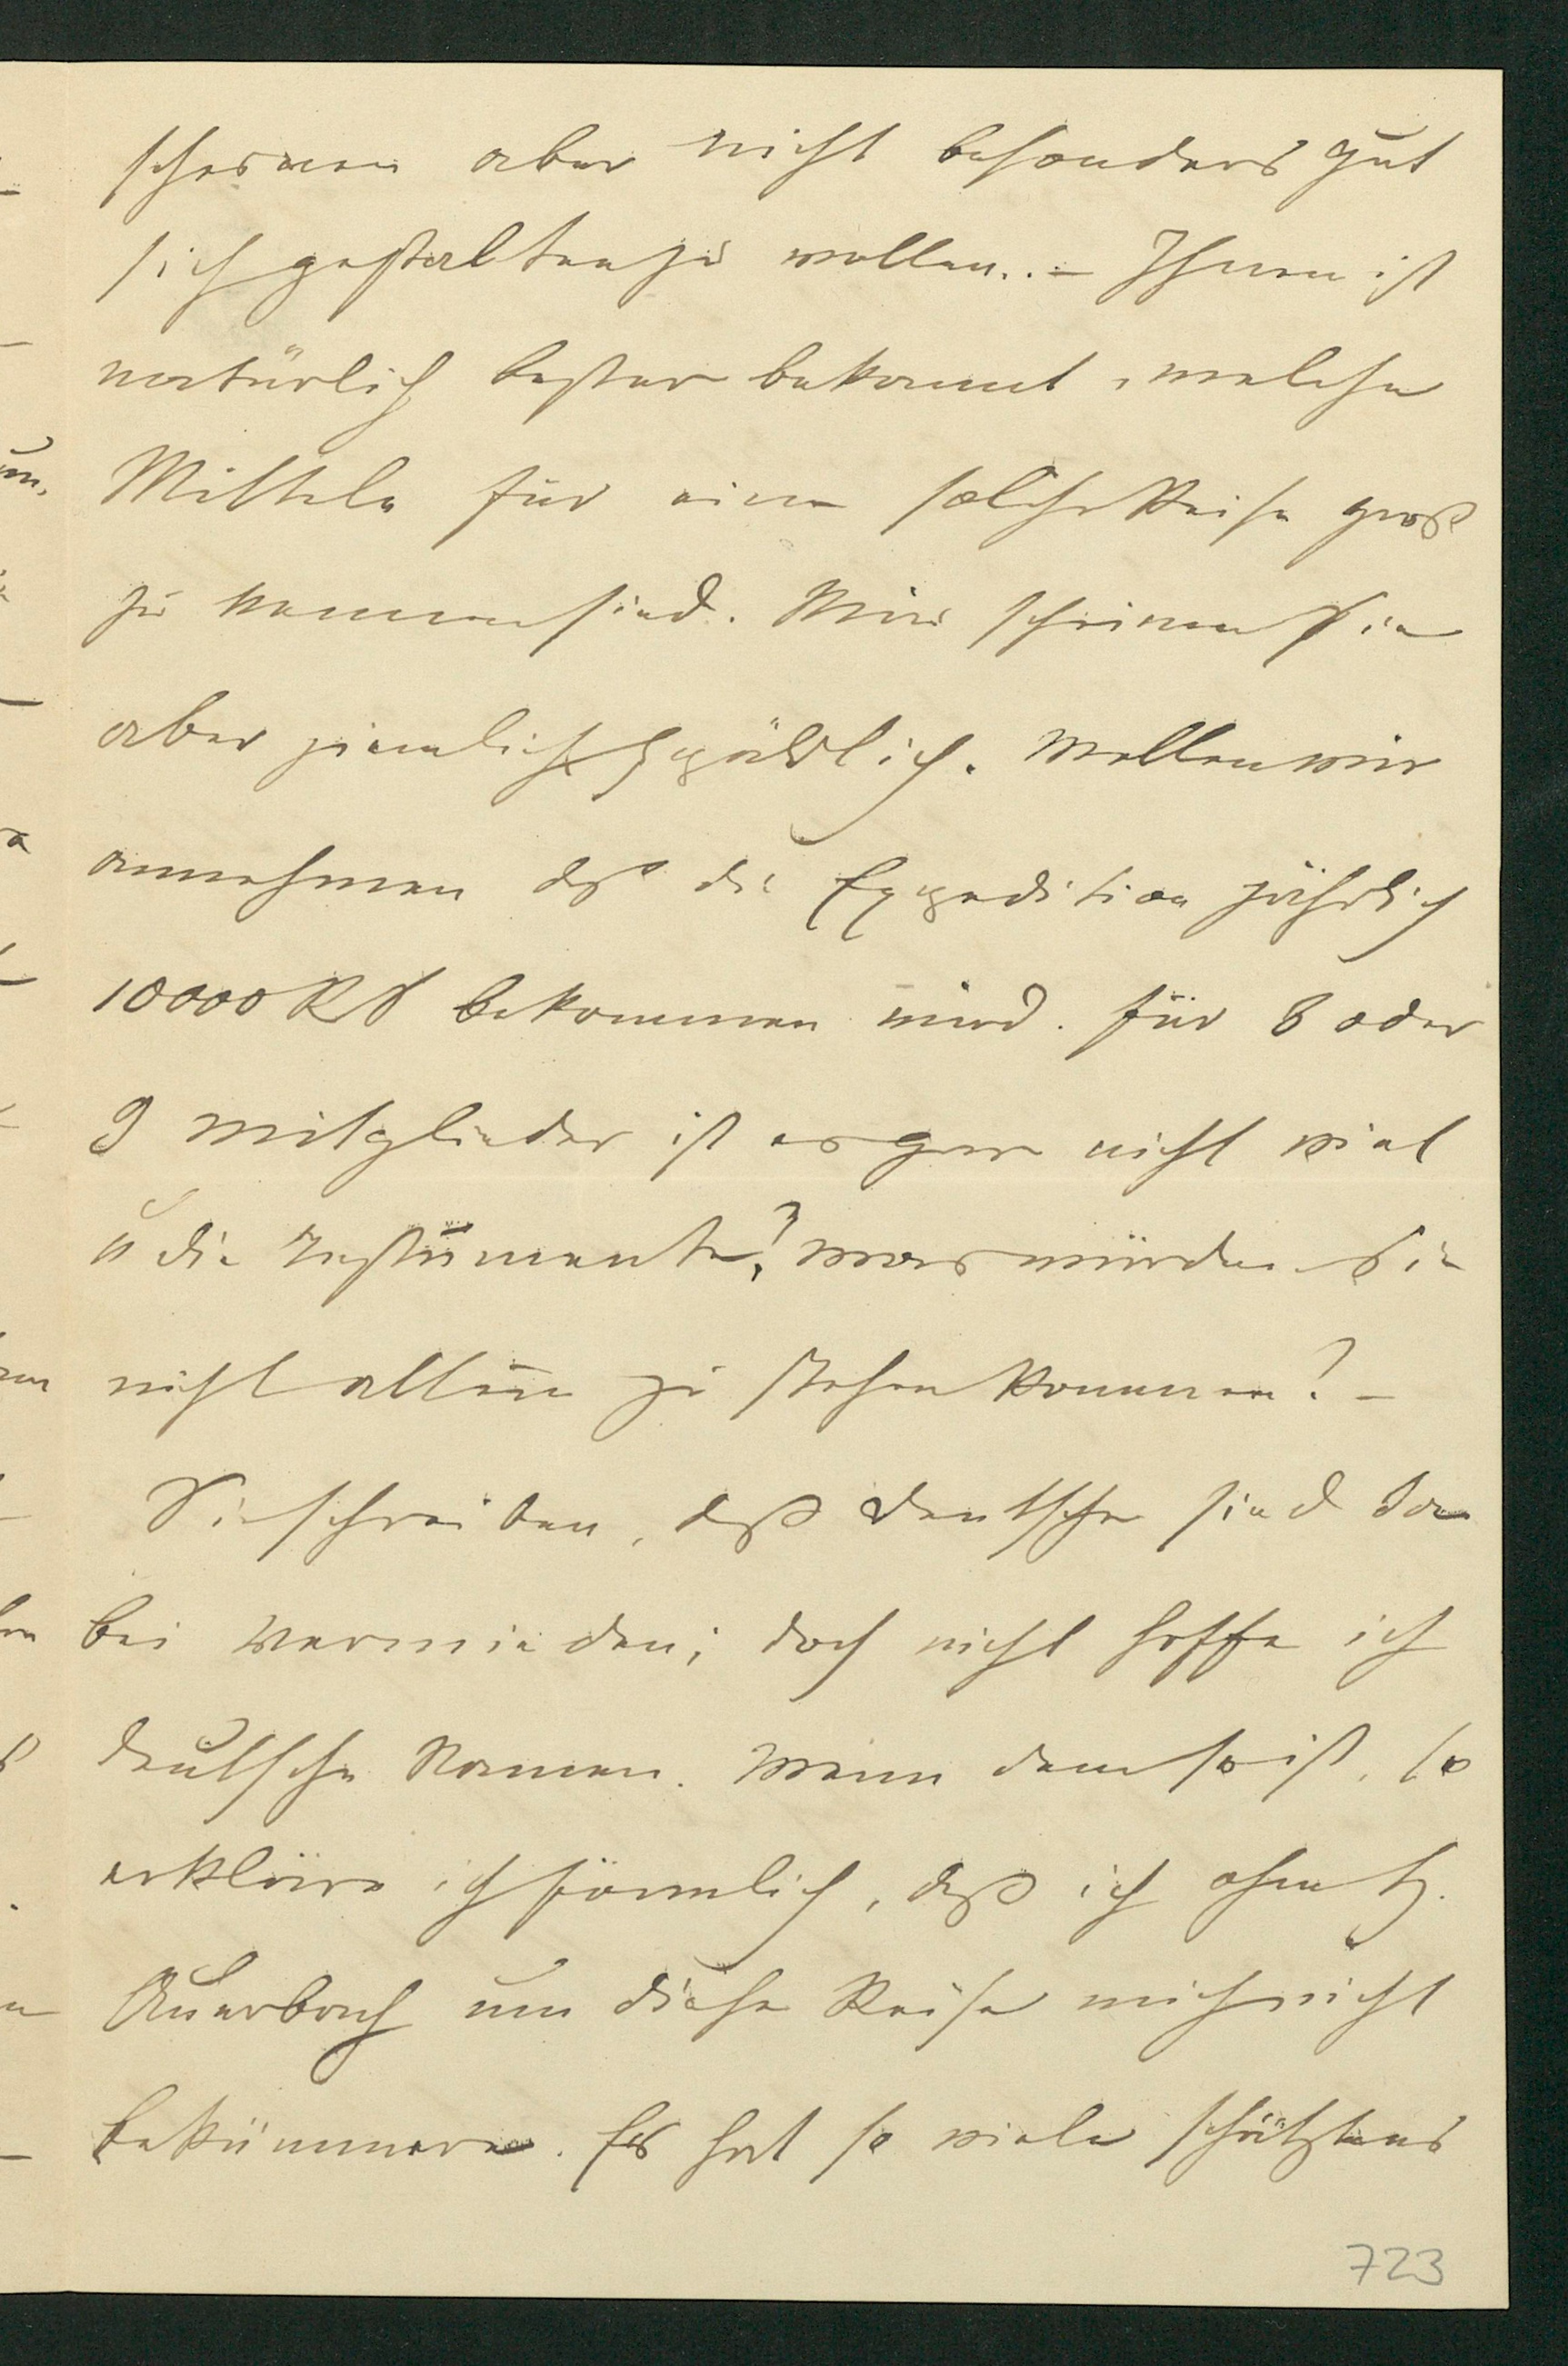 scheinen aber nicht besonders gut
sich gestalten zu wollen.. – Ihnen ist
natürlich besser bekannt, welche
Mitteln für eine solche Reise groß
zu nennen sind. Mir scheinen Sie
aber ziemlich spärlich. Wollen wir
annehmen daß die Expedition jährlich
10000 RS bekommen wird. für 8 oder
9 Mitglieder ist es gar nicht viel
u die Instrumente? was würden Sie
nicht allein zu stehen kommen? –
Sie schreiben, daß deutsche sind da
bei vermieden; doch nicht hoffe ich
deutsche Namen. Wenn dem so ist, so
erkläre ich förmlich, daß ich ohne H.
Auerbach um diese Reise mich nicht
bekümmere. Er hat so viele schätzens
723